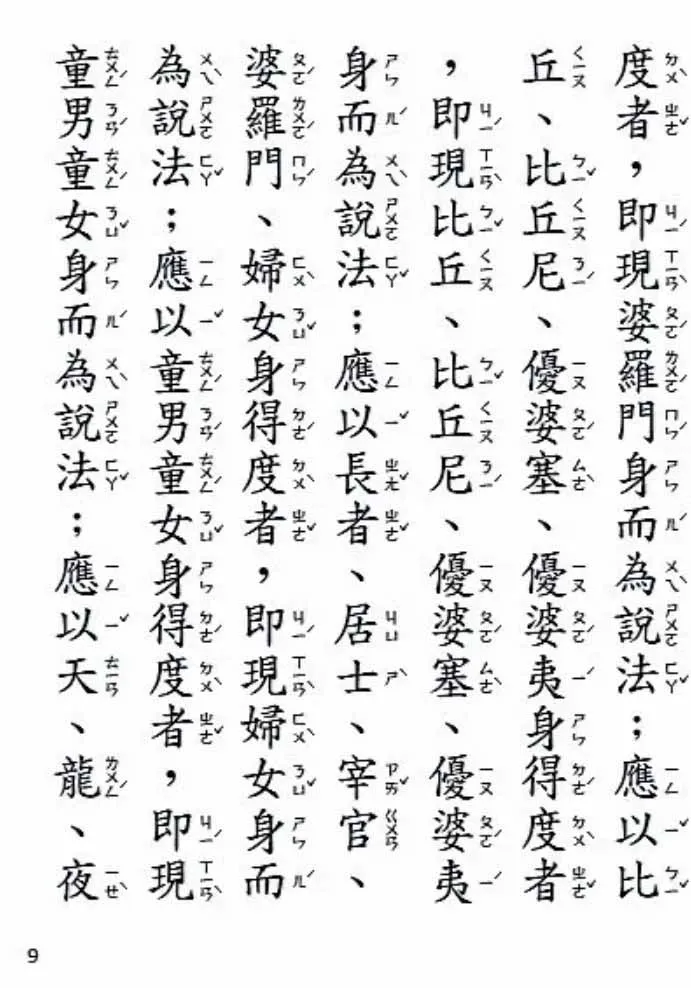 度者，即現婆羅門身而為說法；應以比
丘、比丘尼、優婆塞、優婆夷身得度者
，即現比丘、比丘尼、優婆塞、優婆夷
身而為說法；應以長者、居士、宰官、
婆羅門、婦女身得度者，即現婦女身而
為說法；應以童男童女身得度者，即現
童男童女身而為說法；應以天、龍、夜
9